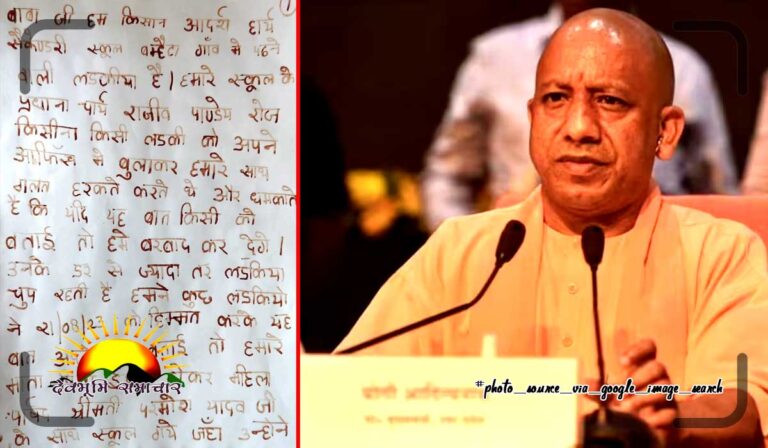 1
बाबा जी हम किसान आदर्श हायर
सैकेण्डरी स्कूल बम्हैटा गाँव मे पढने
वाली लडकीया है। हमारे स्कूल के
प्रधाना चार्य राजीव पाण्डेय रोज
किसीना किसी लडकी को अपने
आफिस मे बुलाकर हमारे साथ
गलत हरकते करते थे और धमकाते
है कि यदि यह बात किसी को
बताई तो हमे बरबाद कर देगे।
उनके डर से ज्यादा तर लडकिया
चुप रहती है हमने कुछ लडकियो
ने 21/08/23 को हिम्मत करके यह
बात तो हमारे
कर महिला
श्रीमती यादव जी
के साथ स्कूल गये जहाँ उन्होने
देवभूमि समाचार
योगी आदित्यनाथ
#photo_source_via_google_image_search